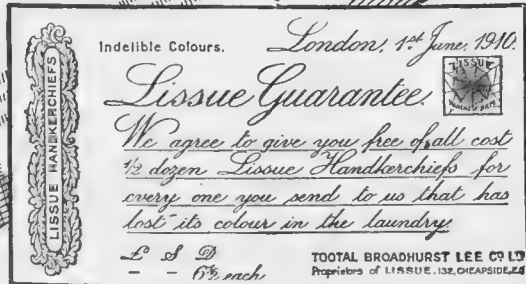 LISSUE HANDKERCHIEFS
Indelible Colours.
London, 1st June, 1910.
Lissue Guarantee.
LISSUE
We agree to give you free of all cost
1/2 dozen Lissue Handkerchiefs for
every one you send to us that has
lost its colour in the laundry
£ S D
- - 6½ each
TOOTAL BROADHURST LEE CO LTD
Proprietors of LISSUE. 132, CHEAPSIDE, E.C